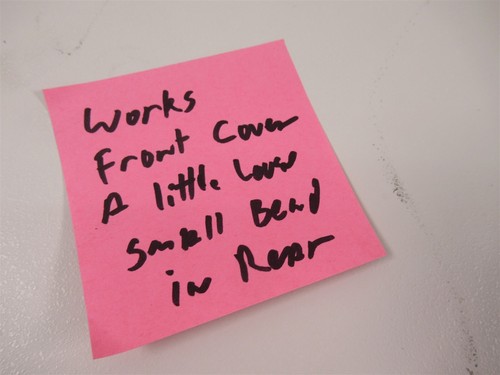 Works
Front Cover
A little
small Bend
in Rear